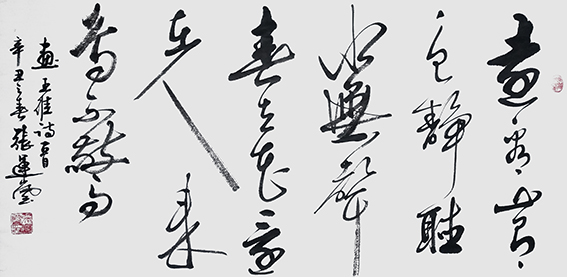 遠看山有
色靜聽
水無聲
春去花還
在人來
鳥不驚
畫王維诗一首
辛丑之春張